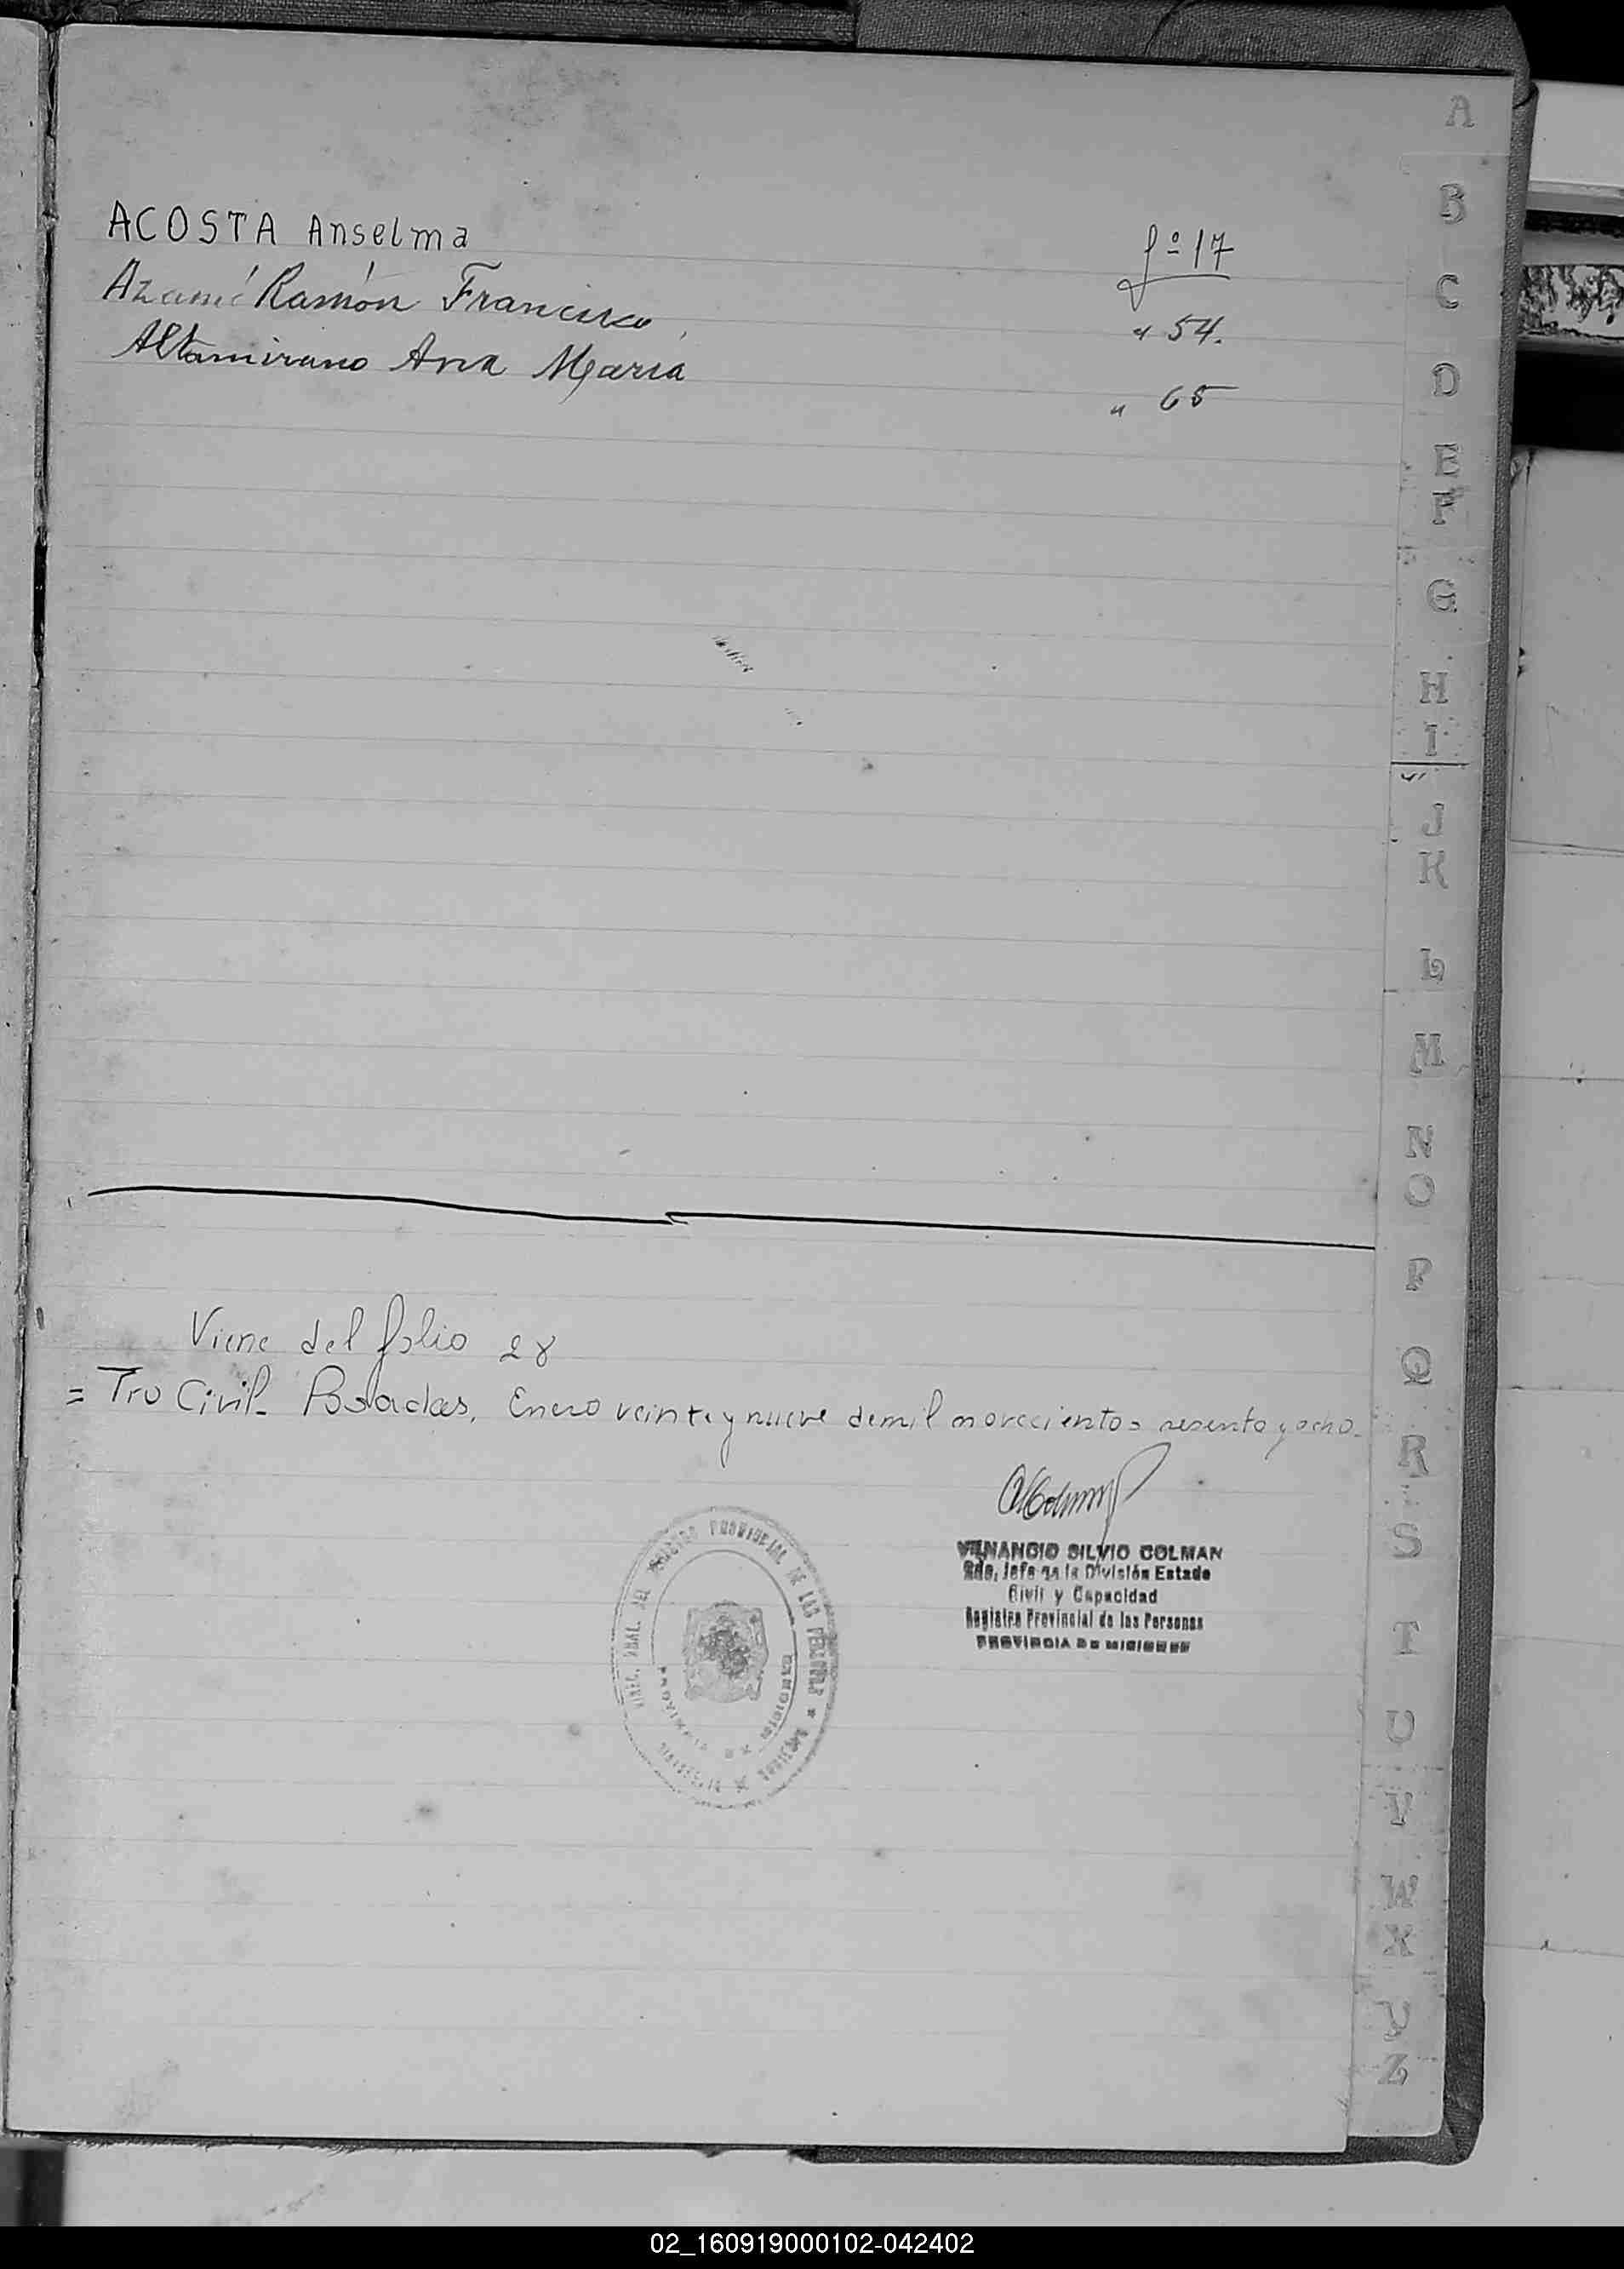 ACOSTA Anselma fº 17
Ramón Francisco " 54.
Altamirano Ana María " 65
Viene del folio 28
= Tro Civil. Posadas, Enero veinte y nueve de mil novecientos sesenta y ocho.
VENANCIO SILVIO COLMAN
2do. Jefe de la División Estado
Civil y Capacidad
Registro Provincial de las Personas
PROVINCIA DE MISIONES
DIREC. GRAL. DEL REGISTRO PROVINCIAL DE LAS PERSONAS
PROVINCIA DE MISIONES
A
B
C
D
E
F
G
H
I
J
K
L
M
N
O
P
Q
R
S
T
U
V
W
X
Y
Z
02_160919000102-042402